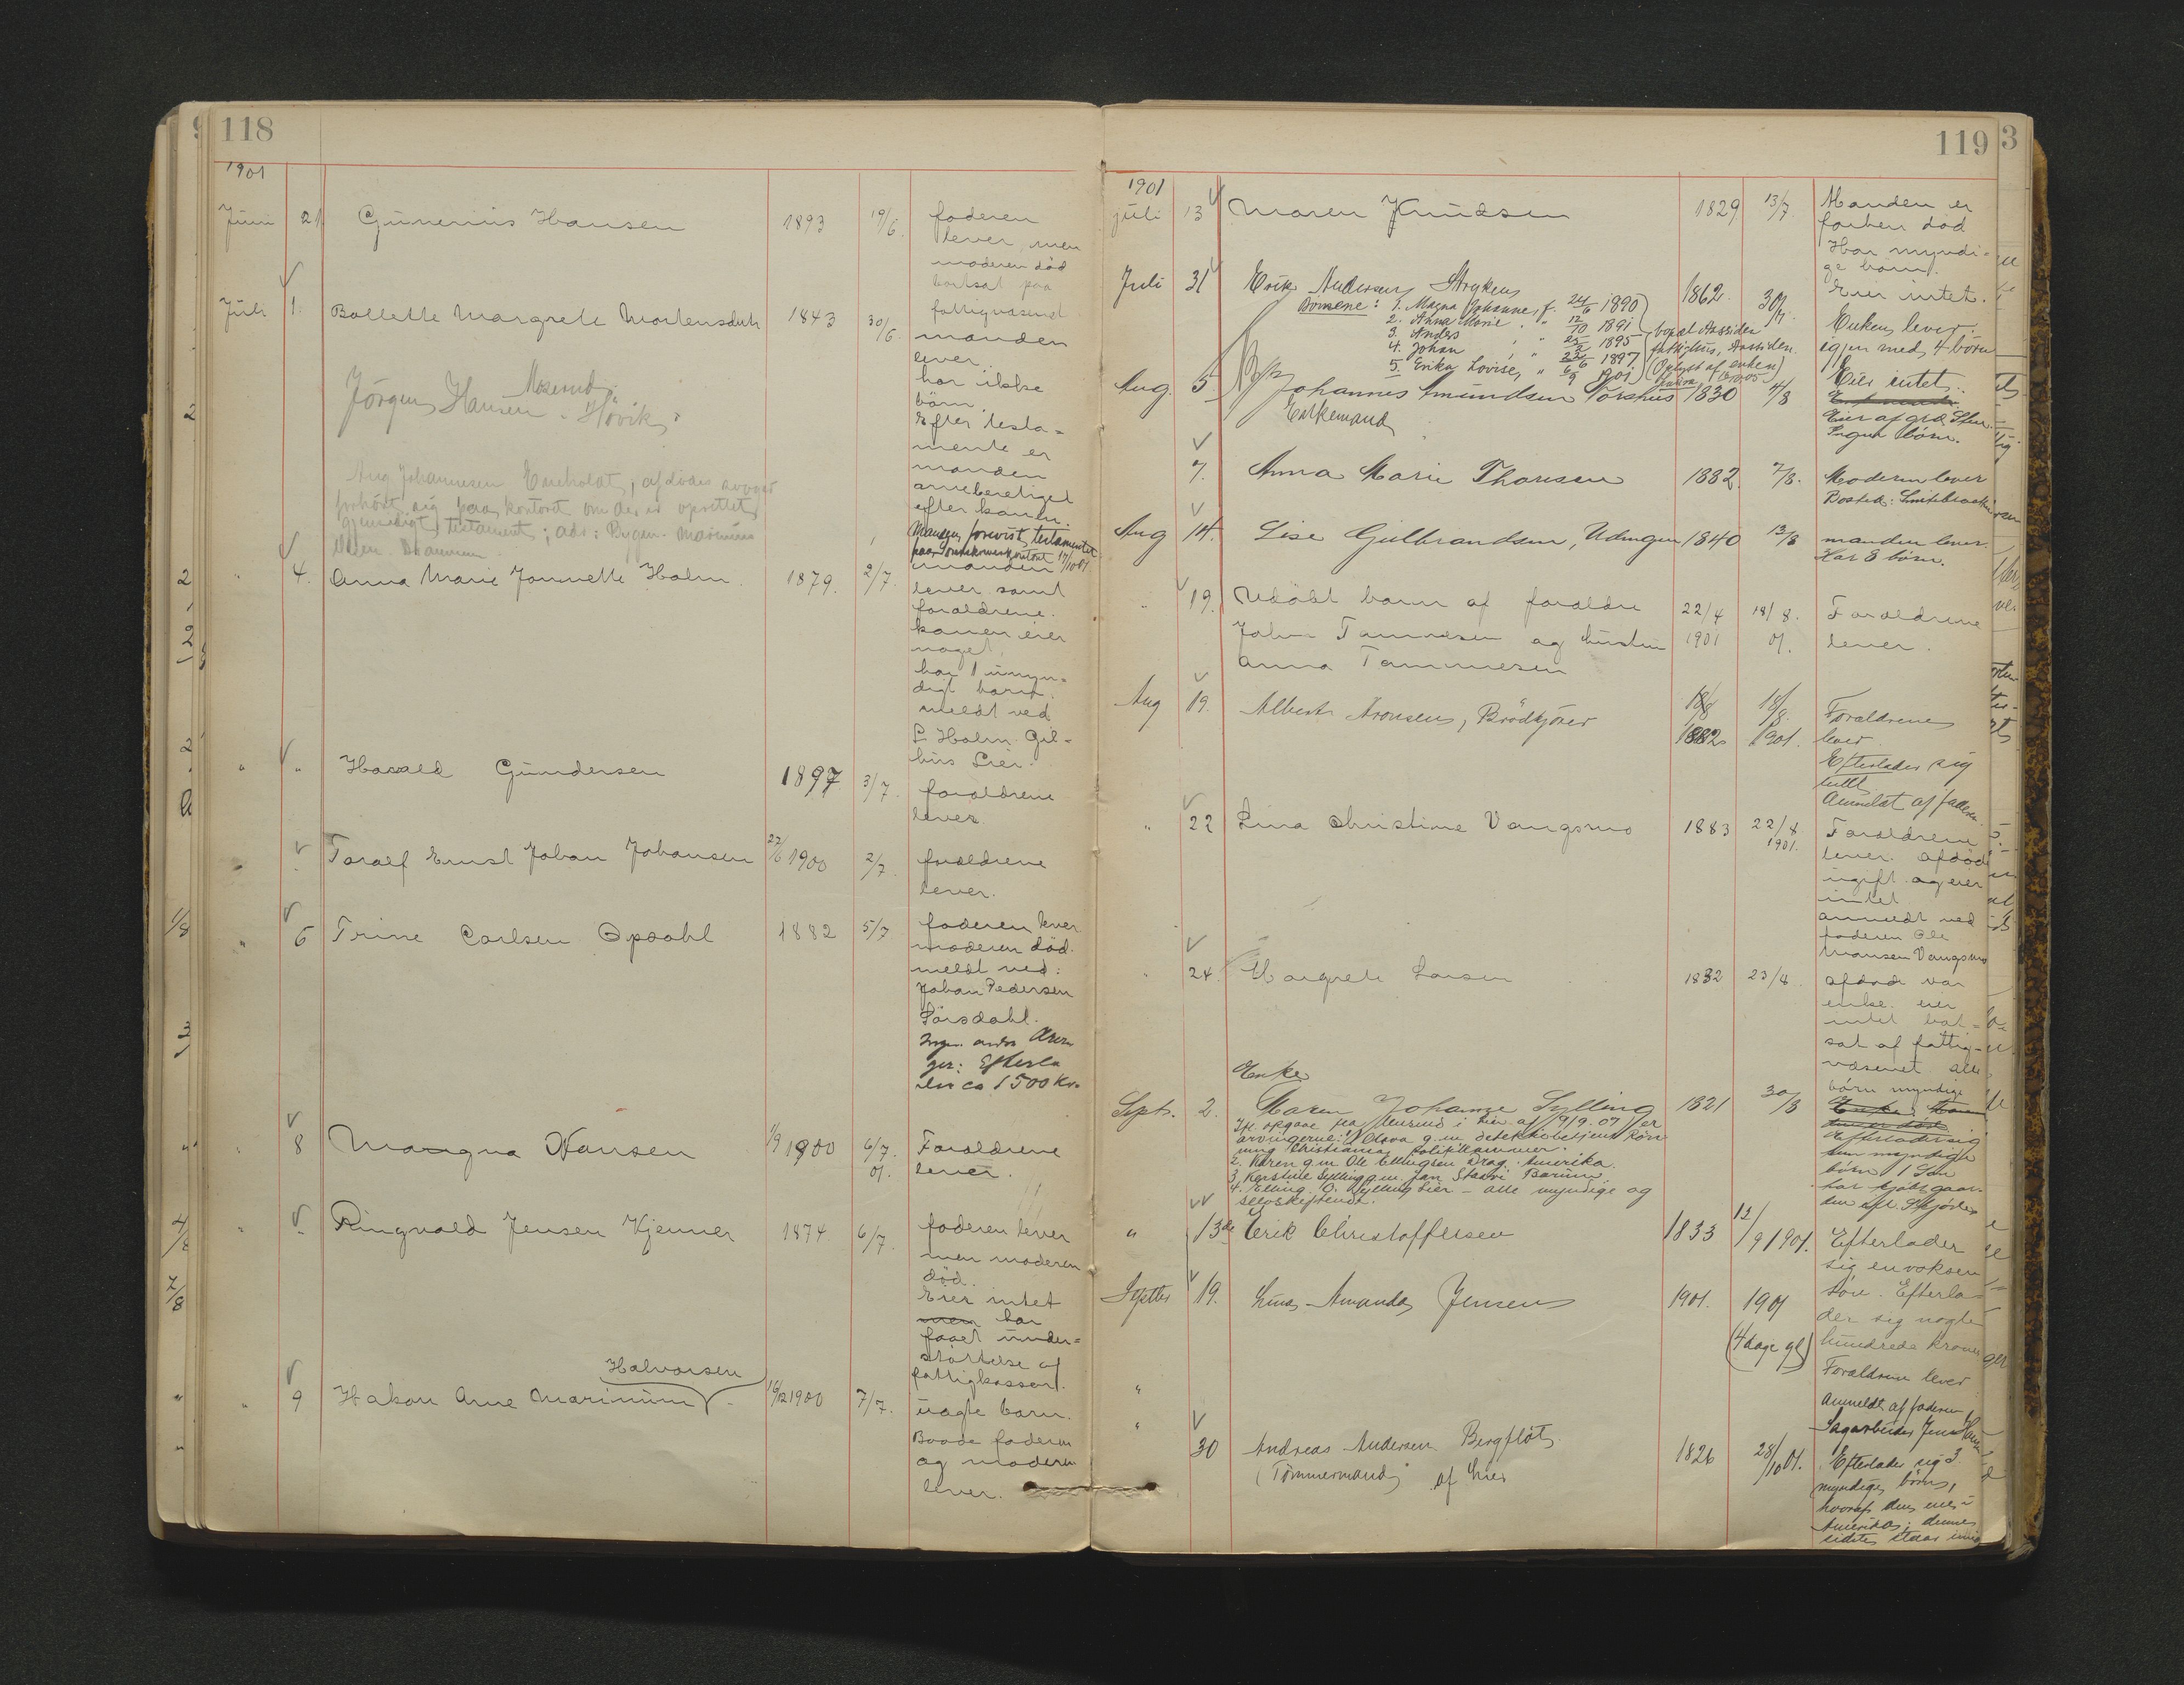 118
1901
Juni 21. Gunerius Hansen 1893 19/6. faderen
lever, men
moderen död
bortsat paa
fattigvæsenet
Juli 1. Bollette Margrete Mortensdatr 1843 30/6. manden
lever.
har ikke
børn.
Efter testa-
mente er
manden
arveberetiget
efter konen.
Jörgen Hansen Høvik
Aug Johannesen afdödes
forhört sig paa kontoret om der er oprettet
gjensidigt testament; adr: Bygm. Marinius
Olsen. Drammen
Manden forevist testamentet
paa 17/10 01
4. Anna Marie Jannette Holm. 1879. 2/7. manden
lever samt
forældrene.
konen eier
noget,
har 1 umyn-
digt barn.
meldt ved
L. Holm. Gil-
hus Lier.
" " Harald Gundersen 1897 3/7. forældrene
lever.
" Toralf Ernst Johan Johansen 27/6 1900 2/7. forældrene
lever.
" 6 Trine Carlsen Opsahl 1882 5/7 faderen lever
moderen död.
meldt ved:
Johan Pedersen
Sørsdahl.
Ingen andre Arvin
ger: Efterla
der ca 1500 Kr.
" 8 Mangna Hansen 1/9 1900 6/7. 01. Forældrene
lever.
" Ringvald Jensen Kjenner 1874 6/7. faderen lever
men moderen
död.
Eier intet
men har
faaet under-
støttelse af
fattigkassen.
Halvorsen
" 9 Hakon Arne Marinium 16/12 1900 7/7. uægte barn.
Baade faderen
og moderen
lever.
119
1901
juli 13 Maren Knudsen 1829 13/7. Manden er
forhen død
Har myndi-
ge børn.
Eier intet.
Juli 31 Erik Andersen Stryken 1862. 30/7. Enken lever
igjen med 4 børn
Eier intet.
Børnene: 1. Magna Johanne, f. 24/6 1890
2. Anna Marie " " 12/10 1891
3. Anders " " 25/2 1895
4. Johan " " 22/6 1897
5. Erika Lovise, " 6/9 1901
bopæl Aassiden
fattighus, Aassiden.
(Oplyst af enken)
Aug. 5. Johannes Amundsen Torshus 1830 4/8
Enkemand
Eier af grd.
Ingen børn.
7. Anna Marie Thoresen 1882. 7/8. Moderen lever
Bosted:
Aug 14. Lise Gulbrandsen, Udengen 1840 13/8 manden lever.
Har 8 børn.
" 19. Udöbt barn af foraldre 22/4 1901 18/8. 01. Forældrene
lever.
Johan Tannesen og hustru
Anna Tannesen
Aug 19. Albert Aronsen, Brødkjører 18/8 1882 18/8. 1901. Forældrene
lever.
Efterlader sig
intet
Anmeldt af faderen.
" 22 Lina Christine Vangsmo 1883 22/8. 1901. Forældrene
lever. afdöde
ugift og eier
intet
anmeldt ved
faderen Ole
Hansen Vangsmo
" 24. Margrete Larsen 1832 23/8. afdøde var
enke. eier
intet bort-
sat af fattig-
væsenet. alle
børn myndige
Enke
Septr. 2. Maren Johanne Sylling 1821 30/8
Ifl. opgave fra lensmd i Lier af 19/9.07 er
arvingerne: 1. Olava g.m. detektivbetjent Rön
ning Christiania politikammer.
2. Karen g.m. Ole Ellingsen Drag, Amerika.
3. Kerstine Sylling g.m. Jan Staavi Bærum.
4. Elling O. Sylling Lier – alle myndige og
selvskiftende.
Efterlader sig
kun myndige
børn 1 Søn
har kjøbt gaar-
den efl. Skjøde
" 13de Erik Christoffersen 1833 12/9 1901. Efterlader
sig en voksen
søn. Efterla-
der sig nogle
hundrede kroner
Septbr 19. Lina Amanda Jensen 1901. 1901
(4 dage gl)
Forældrene lever
Anmeldt af faderen
Sagarbeider Jens
30 Andreas Andersen Bergflöt 1826 28/10 01. Efterlader sig 3
(Tømmermand) af Lier
myndige børn,
hvoraf den ene i
Amerika; dennes